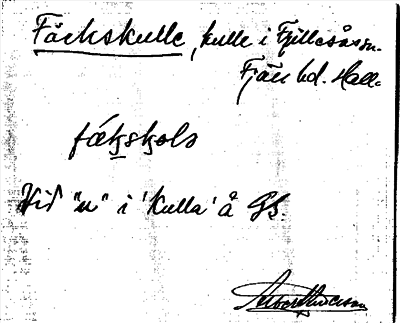 Fäckskulle, kulle i Fjillesås sn.
Fjäre hd. Hall.
fäkskols
Vid "u" i 'Kulla' å GS.